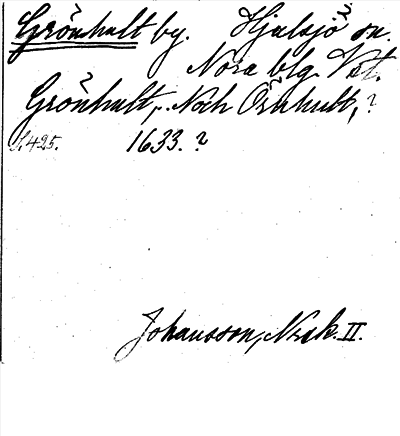 Grönhult by. Hjulsjö sn.
Nora blg. Vstl.
Grönhult, Noch Örnhult, ?
S. 425. 1633. ?
Johansson, Norask. II.